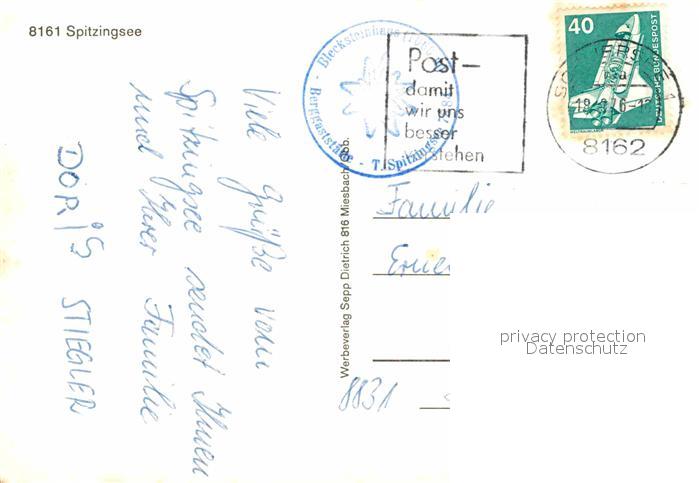 8161 Spitzingsee
Viele Grüße vom
Spitzingsee sendet Ihnen
und Ihrer Familie
DORIS STIEGLER
Blecksteinhaus
Berggaststätte - T. Spitzingsee
Post-
damit
wir uns
besser
verstehen
40
DEUTSCHE BUNDESPOST
8162
Werbeverlag Sepp Dietrich 816 Miesbach/Obb.
Familie
8831
privacy protection
Datenschutz